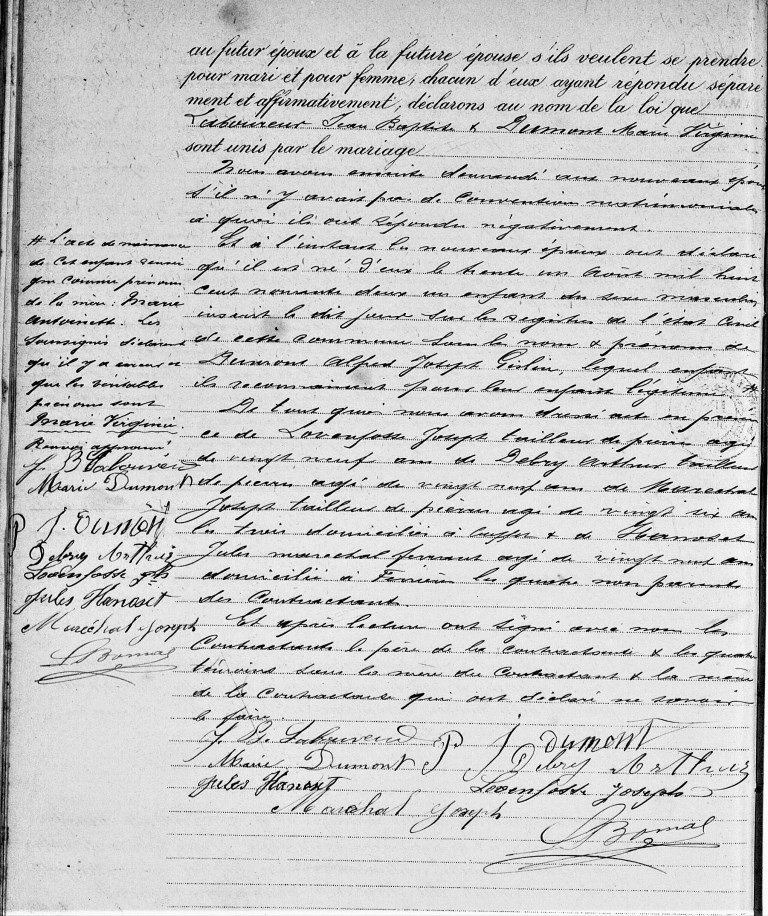 au futur époux et à la future épouse s'ils veulent se prendre
pour mari et pour femme, chacun d'eux ayant répondu séparé
ment et affirmativement, déclarons au nom de la loi que
Laboureur Jean Baptiste & Dumont Marie Virginie
sont unis par le mariage
Nous avons ensuite demandé aux nouveaux époux
s'il n'y avait pas de convention matrimoniale
à quoi ils ont répondu négativement.
Et à l'instant les nouveaux époux ont déclaré
qu'il est né d'eux le trente un Août mil huit
cent nonante deux un enfant du sexe masculin
inscrit le dit jour sur les registres de l'état civil
de cette commune sous le nom & prénoms de
Dumont Alfred Joseph Ghislin, lequel enfant
ils reconnaissent pour leur enfant légitime #
De tout quoi nous avons dressé acte en présen
ce de Lovenfosse Joseph tailleur de pierre agé
de vingt neuf ans de Debry Arthur tailleur
de pierres agé de vingt neuf ans de Marechal
Joseph tailleur de pierres agé de vingt six ans
les trois domiciliés à & de Hanoset
Jules marechal ferrant agé de vingt neuf ans
domicilié à Ferrières les quatre non parents
des Contractants.
Et après lecture ont signé avec nous les
Contractants le père de la contractante & les quatre
témoins sous les mère du Contractant & la mère
de la Contractante qui ont déclaré ne savoir
le faire.
J. B. Laboureur P J. Dumont
Marie Dumont Debry Arthur
Jules Hanoset Lovenfosse Joseph
Maréchal Joseph
Bomal
# L'acte de naissance
de cet enfant rensei
gne comme prénoms
de la mère: Marie
Antoinette. Les
soussignés déclarent
qu'il y a erreur et
que les véritables
prénoms sont
Marie Virginie.
Renvoi approuvé
J B Laboureur
Marie Dumont
P J. Dumont
Debry Arthur
Lovenfosse Jh
Jules Hanoset
Maréchal Joseph
Bomal